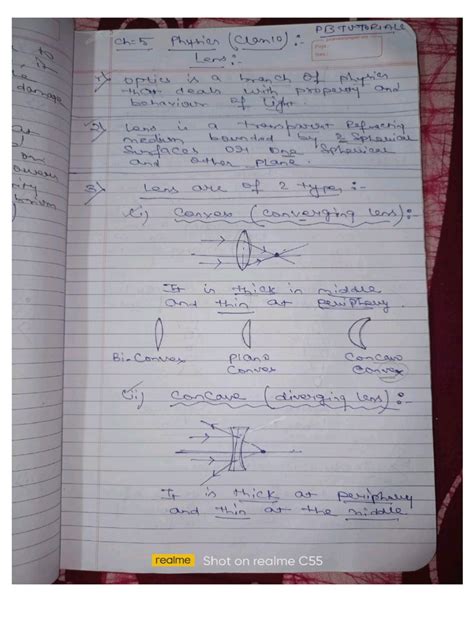 PB TUTORIALS
Ch-5 Physics (Class 10) :-
Lens :-
1) Optics is a branch of physics
that deals with property and
behaviour of light.
2) Lens is a transparent Refracting
medium bounded by 2 Spherical
Surfaces OR one Spherical
and other plane.
3) Lens are of 2 types :-
(i) Convex (converging lens) :-
It is thick in middle
and thin at periphary
Bi-Convex Plano Concavo
Convex Convex
(ii) Concave (diverging lens) :-
It is thick at periphary
and thin at the middle
realme Shot on realme C55
to
it
damage
at
on